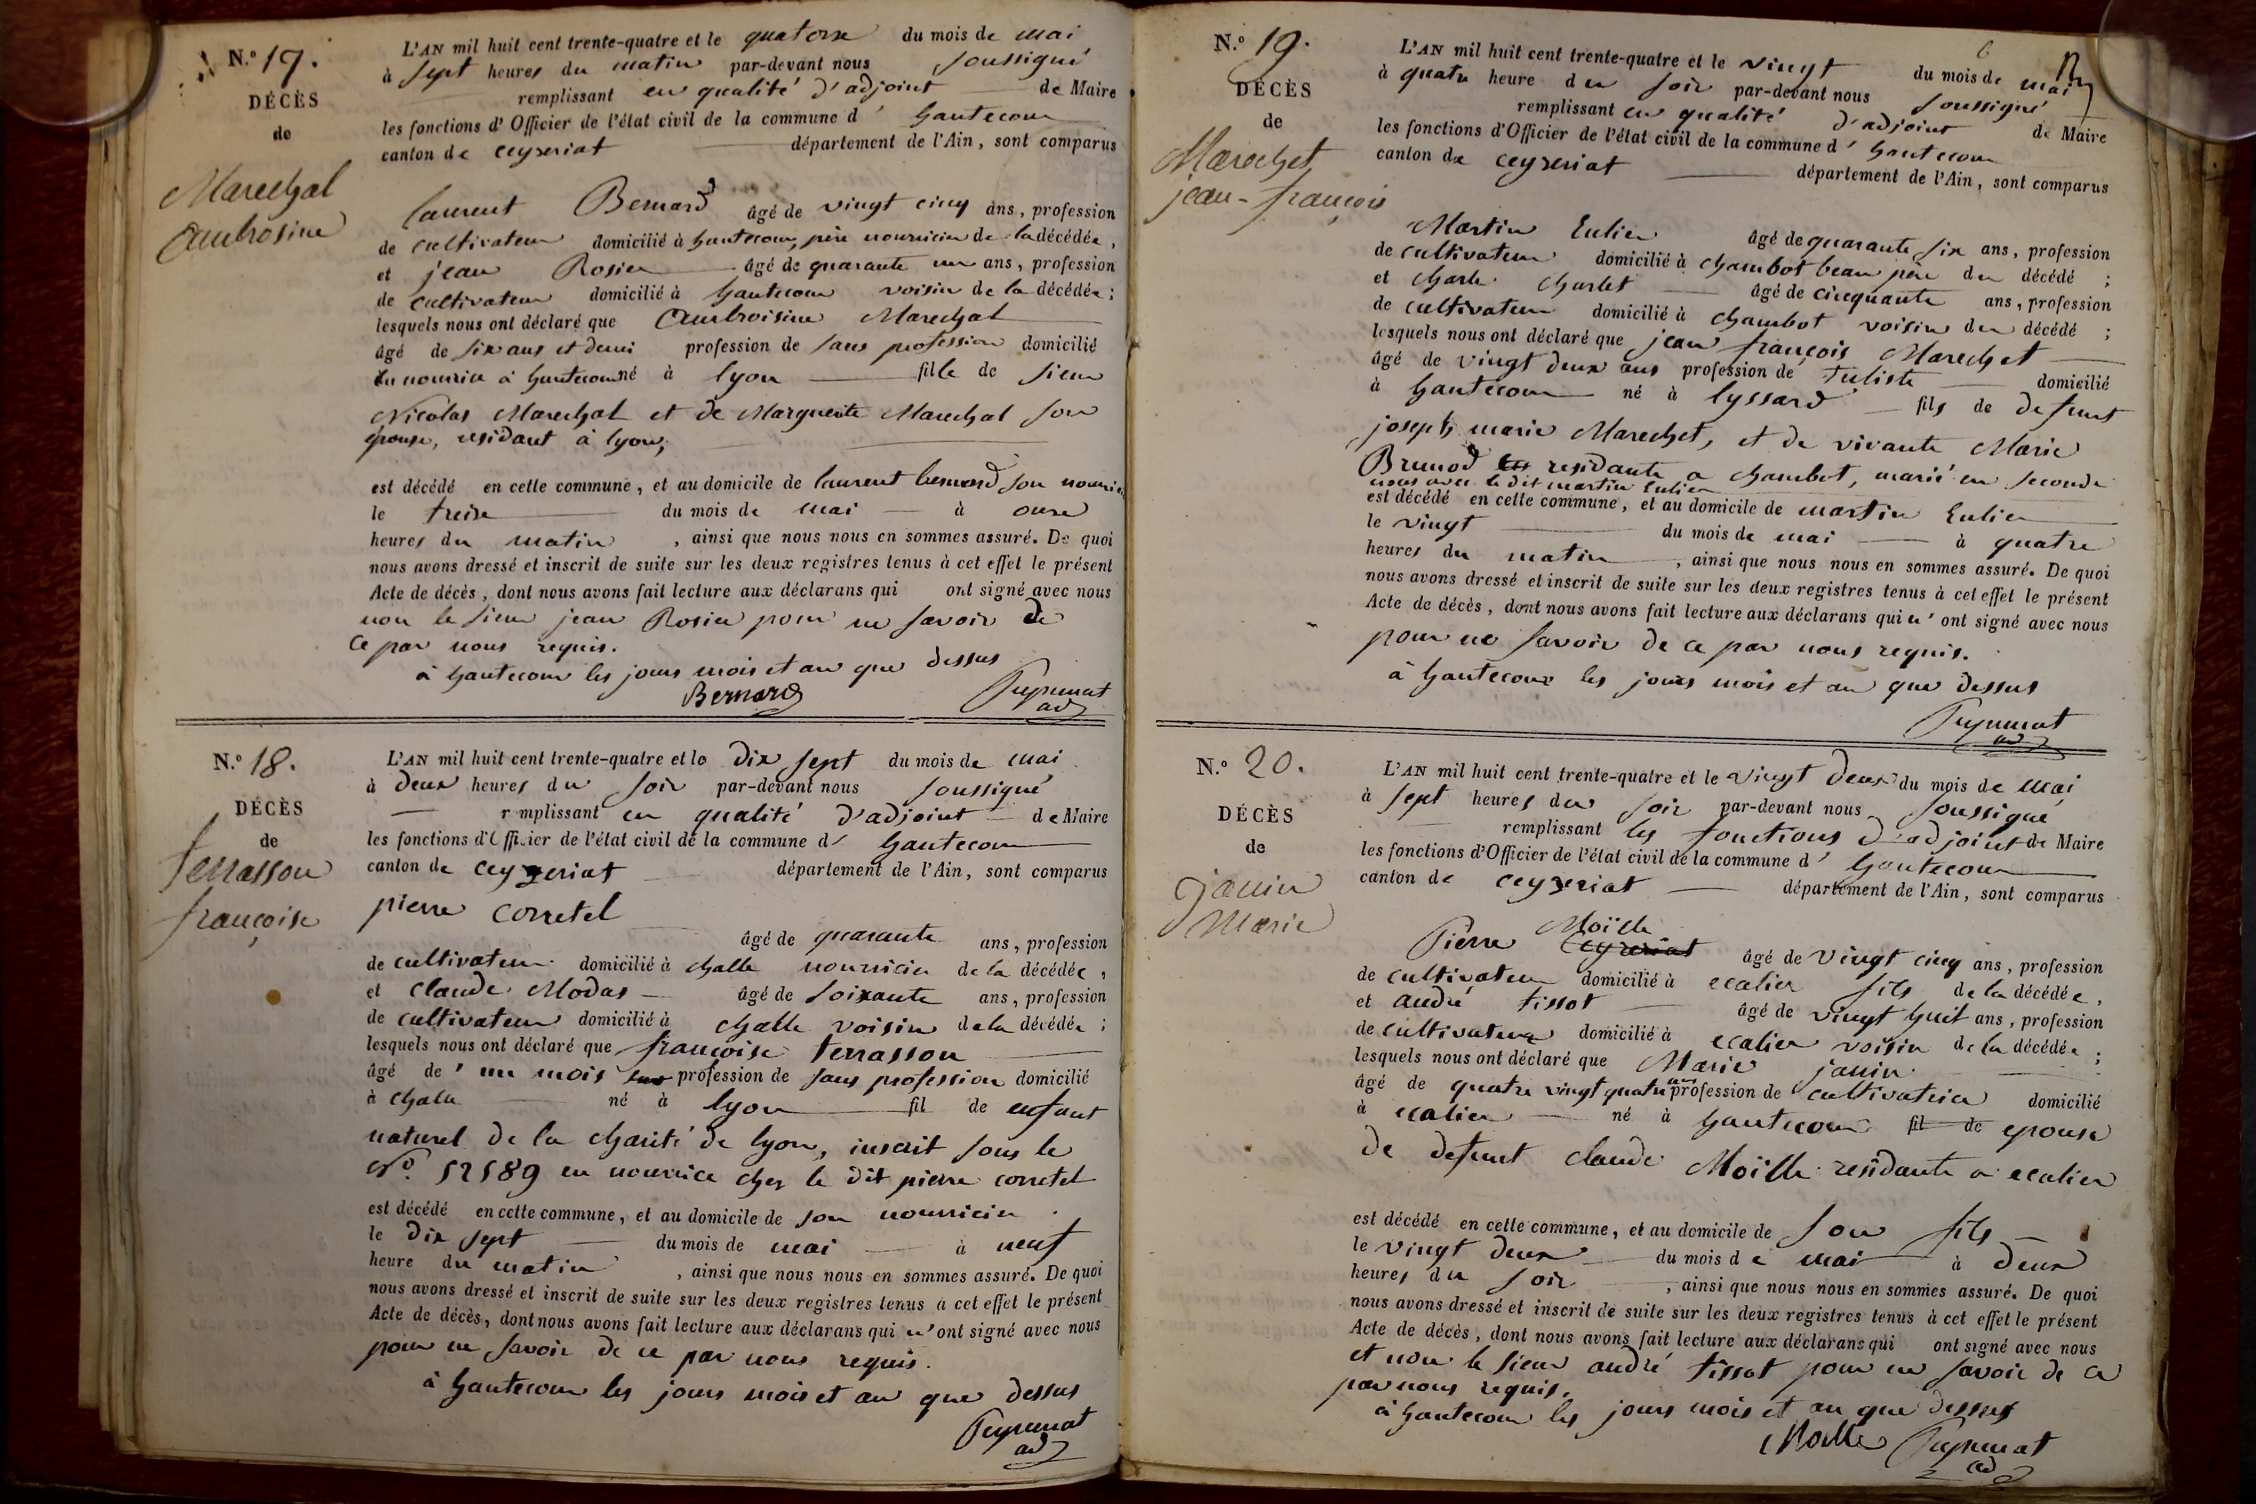 N.º 17.
DÉCÈS
de
Marechal
Ambrosine
L'AN mil huit cent trente-quatre et le quatorze du mois de mai
à sept heures du matin par-devant nous soussigné
remplissant en qualité d'adjoint de Maire
les fonctions d'Officier de l'état civil de la commune d' hautecour
canton de ceyzeriat département de l'Ain, sont comparus
laurent Bernard âgé de vingt cinq ans, profession
de cultivateur domicilié à hautecour, père nourricier de la décédée,
et jean Rosier âgé de quarante un ans, profession
de cultivateur domicilié à hautecour voisin de la décédée;
lesquels nous ont déclaré que Ambroisine Marechal
âgé de six ans et demi profession de sans profession domicilié
en nourrice à hautecour né à lyon fille de sieur
Nicolas Marechal et de Marguerite Marechal son
épouse, residant à lyon,
est décédé en cette commune, et au domicile de laurent bernard son nourricier
le treize du mois de mai à onze
heures du matin, ainsi que nous nous en sommes assuré. De quoi
nous avons dressé et inscrit de suite sur les deux registres tenus à cet effet le présent
Acte de décès, dont nous avons fait lecture aux déclarans qui ont signé avec nous
non le sieur jean Rosier pour ne savoir de
ce par nous requis.
à hautecour les jours mois et an que dessus
Bernard
ad
N.º 18.
DÉCÈS
de
terrasson
françoise
L'AN mil huit cent trente-quatre et le dix sept du mois de mai
à deux heures du soir par-devant nous soussigné
remplissant en qualité d'adjoint de Maire
les fonctions d'Officier de l'état civil de la commune d' hautecour
canton de ceyzeriat département de l'Ain, sont comparus
pierre corretel
âgé de quarante ans, profession
de cultivateur domicilié à challe nourricier de la décédée,
et claude Modas âgé de soixante ans, profession
de cultivateur domicilié à challe voisin de la décédée;
lesquels nous ont déclaré que françoise terrasson
âgé de un mois profession de sans profession domicilié
à challe né à lyon fil de enfant
naturel de la charité de lyon, inscrit sous le
Nº 52589 en nourrice chez le dit pierre corretel
est décédé en cette commune, et au domicile de son nourricier
le dix sept du mois de mai à neuf
heure du matin, ainsi que nous nous en sommes assuré. De quoi
nous avons dressé et inscrit de suite sur les deux registres tenus à cet effet le présent
Acte de décès, dont nous avons fait lecture aux déclarans qui n'ont signé avec nous
pour ne savoir de ce par nous requis.
à hautecour les jours mois et an que dessus
ad
N.º 19.
DÉCÈS
de
Marechet
jean-françois
L'AN mil huit cent trente-quatre et le vingt du mois de mai
à quatre heure du soir par-devant nous soussigné
remplissant en qualité d'adjoint de Maire
les fonctions d'Officier de l'état civil de la commune d' hautecour
canton de ceyzeriat département de l'Ain, sont comparus
Martin Eulier âgé de quarante six ans, profession
de cultivateur domicilié à chambot beau père du décédé;
et charle charlet âgé de cinquante ans, profession
de cultivateur domicilié à chambot voisin du décédé;
lesquels nous ont déclaré que jean françois Marechet
âgé de vingt deux ans profession de tuliste domicilié
à hautecour né à lyssard fils de defunt
joseph marie Marechet, et de vivante Marie
Brunod residante a chambot, marié en seconde
avec le dit martin Eulier
est décédé en cette commune, et au domicile de martin Eulier
le vingt du mois de mai à quatre
heures du matin, ainsi que nous nous en sommes assuré. De quoi
nous avons dressé et inscrit de suite sur les deux registres tenus à cet effet le présent
Acte de décès, dont nous avons fait lecture aux déclarans qui n'ont signé avec nous
pour ne savoir de ce par nous requis.
à hautecour les jours mois et an que dessus
ad
N.º 20.
DÉCÈS
de
janin
Marie
L'AN mil huit cent trente-quatre et le vingt deux du mois de mai
à sept heures du soir par-devant nous soussigné
remplissant les fonctions d'adjoint de Maire
les fonctions d'Officier de l'état civil de la commune d' hautecour
canton de ceyzeriat département de l'Ain, sont comparus
Moïlle
Pierre Ceyzeriat âgé de vingt cinq ans, profession
de cultivateur domicilié à ecalier fils de la décédée,
et andré tissot âgé de vingt huit ans, profession
de cultivateur domicilié à ecalier voisin de la décédée;
lesquels nous ont déclaré que Marie janin
âgé de quatre vingt quatre ans profession de cultivatrice domicilié
à ecalier né à hautecour fil de epouse
de defunt claude Moïlle residante a ecalier
est décédé en cette commune, et au domicile de son fils
le vingt deux du mois de mai à deux
heures du soir, ainsi que nous nous en sommes assuré. De quoi
nous avons dressé et inscrit de suite sur les deux registres tenus à cet effet le présent
Acte de décès, dont nous avons fait lecture aux déclarans qui ont signé avec nous
et non le sieur andré tissot pour ne savoir de ce
par nous requis.
à hautecour les jours mois et an que dessus
Moille
ad